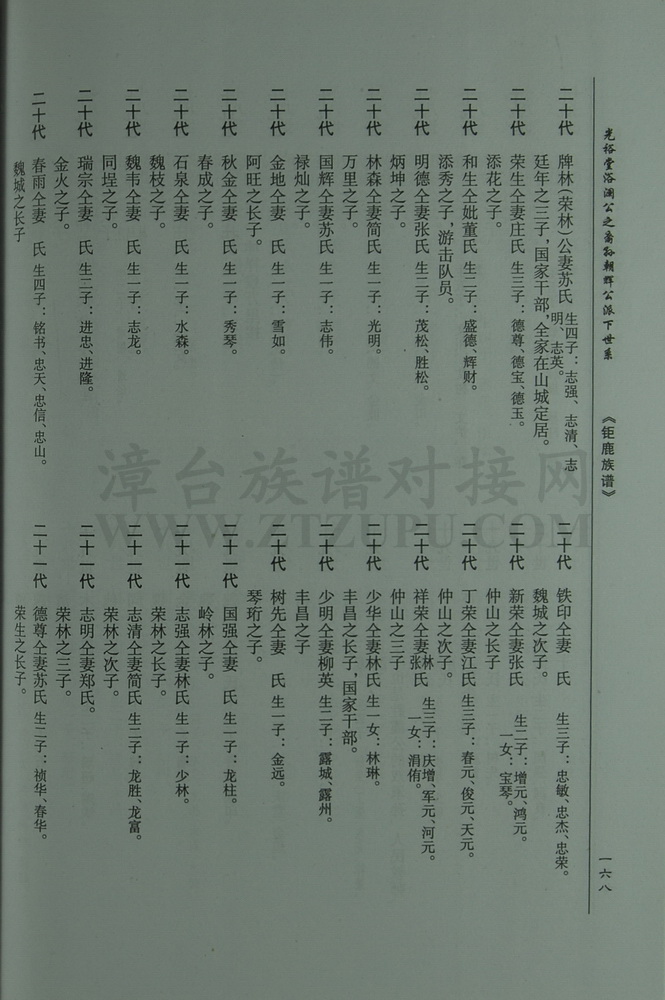 光裕堂浴澜公之裔孙朝辉公派下世系
《钜鹿族谱》
一六八
二十代 牌林(荣林)公妻苏氏 生四子：志强、志清、志明、志英。
廷年之三子，国家干部，全家在山城定居。
二十代 荣生仝妻庄氏 生三子：德尊、德宝、德玉。
添花之子。
二十代 和生仝妣董氏 生二子：盛德、辉财。
添秀之子，游击队员。
二十代 明德仝妻张氏 生二子：茂松、胜松。
炳坤之子。
二十代 林森仝妻简氏 生一子：光明。
万里之子。
二十代 国辉仝妻苏氏 生一子：志伟。
禄灿之子。
二十代 金地仝妻 氏 生一子：雪如。
阿旺之长子。
二十代 秋金仝妻 氏 生一子：秀琴。
春成之子。
二十代 石泉仝妻 氏 生一子：水森。
魏枝之子。
二十代 魏韦仝妻 氏 生一子：志龙。
同埕之子。
二十代 瑞宗仝妻 氏 生二子：进忠、进隆。
金火之子。
二十代 春雨仝妻 氏 生四子：铭书、忠天、忠信、忠山。
魏城之长子
二十代 铁印仝妻 氏 生三子：忠敏、忠杰、忠荣。
魏城之次子。
二十代 新荣仝妻张氏 生二子：增元、鸿元。一女：宝琴。
仲山之长子
二十代 丁荣仝妻江氏 生三子：春元、俊元、天元。
仲山之次子。
二十代 祥荣仝妻林氏张氏 生三子：庆增、军元、河元。一女：涓侑。
仲山之三子
二十代 少华仝妻林氏 生一女：林琳。
丰昌之长子，国家干部。
二十代 少明仝妻柳英 生二子：露城、露州。
丰昌之子
二十代 树先仝妻 氏 生一子：金远。
琴珩之子。
二十一代 国强仝妻 氏 生一子：龙柱。
岭林之子。
二十一代 志强仝妻林氏 生一子：少林。
荣林之长子。
二十一代 志清仝妻简氏 生二子：龙胜、龙富。
荣林之次子。
二十一代 志明仝妻郑氏。
荣林之三子。
二十一代 德尊仝妻苏氏 生二子：祯华、春华。
荣生之长子。
漳台族谱对接网
WWW.ZTZUPU.COM